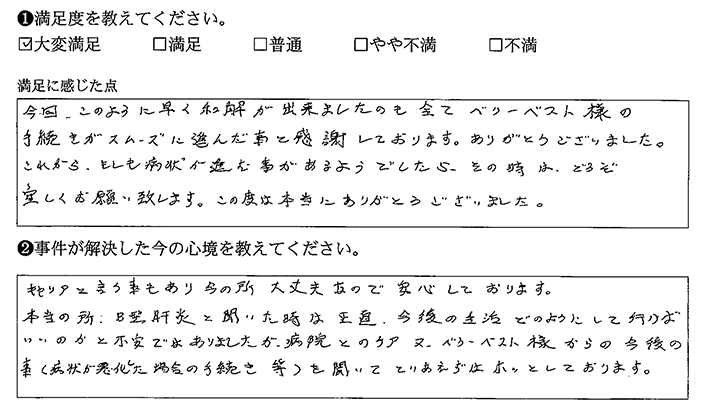 ❶満足度を教えてください。
☑大変満足 □満足 □普通 □やや不満 □不満
満足に感じた点
今回、このように早く和解が出来ましたのも全てベリーベスト様の
手続きがスムーズに進んだ事と感謝しております。ありがとうございました。
これから、もしも病状が進む事があるようでしたら、その時は、どうぞ
宜しくお願い致します。この度は本当にありがとうございました。
❷事件が解決した今の心境を教えてください。
キャリアと言う事もあり今の所 大丈夫なので 安心しております。
本当の所、B型肝炎と聞いた時は正直、今後の生活どのようにして行けば
いいのかと不安ではありましたが、病院とのケア 又、ベリーベスト様からの今後の
事(病状が悪化した場合の手続き等)を聞いてとりあえずはホッとしております。